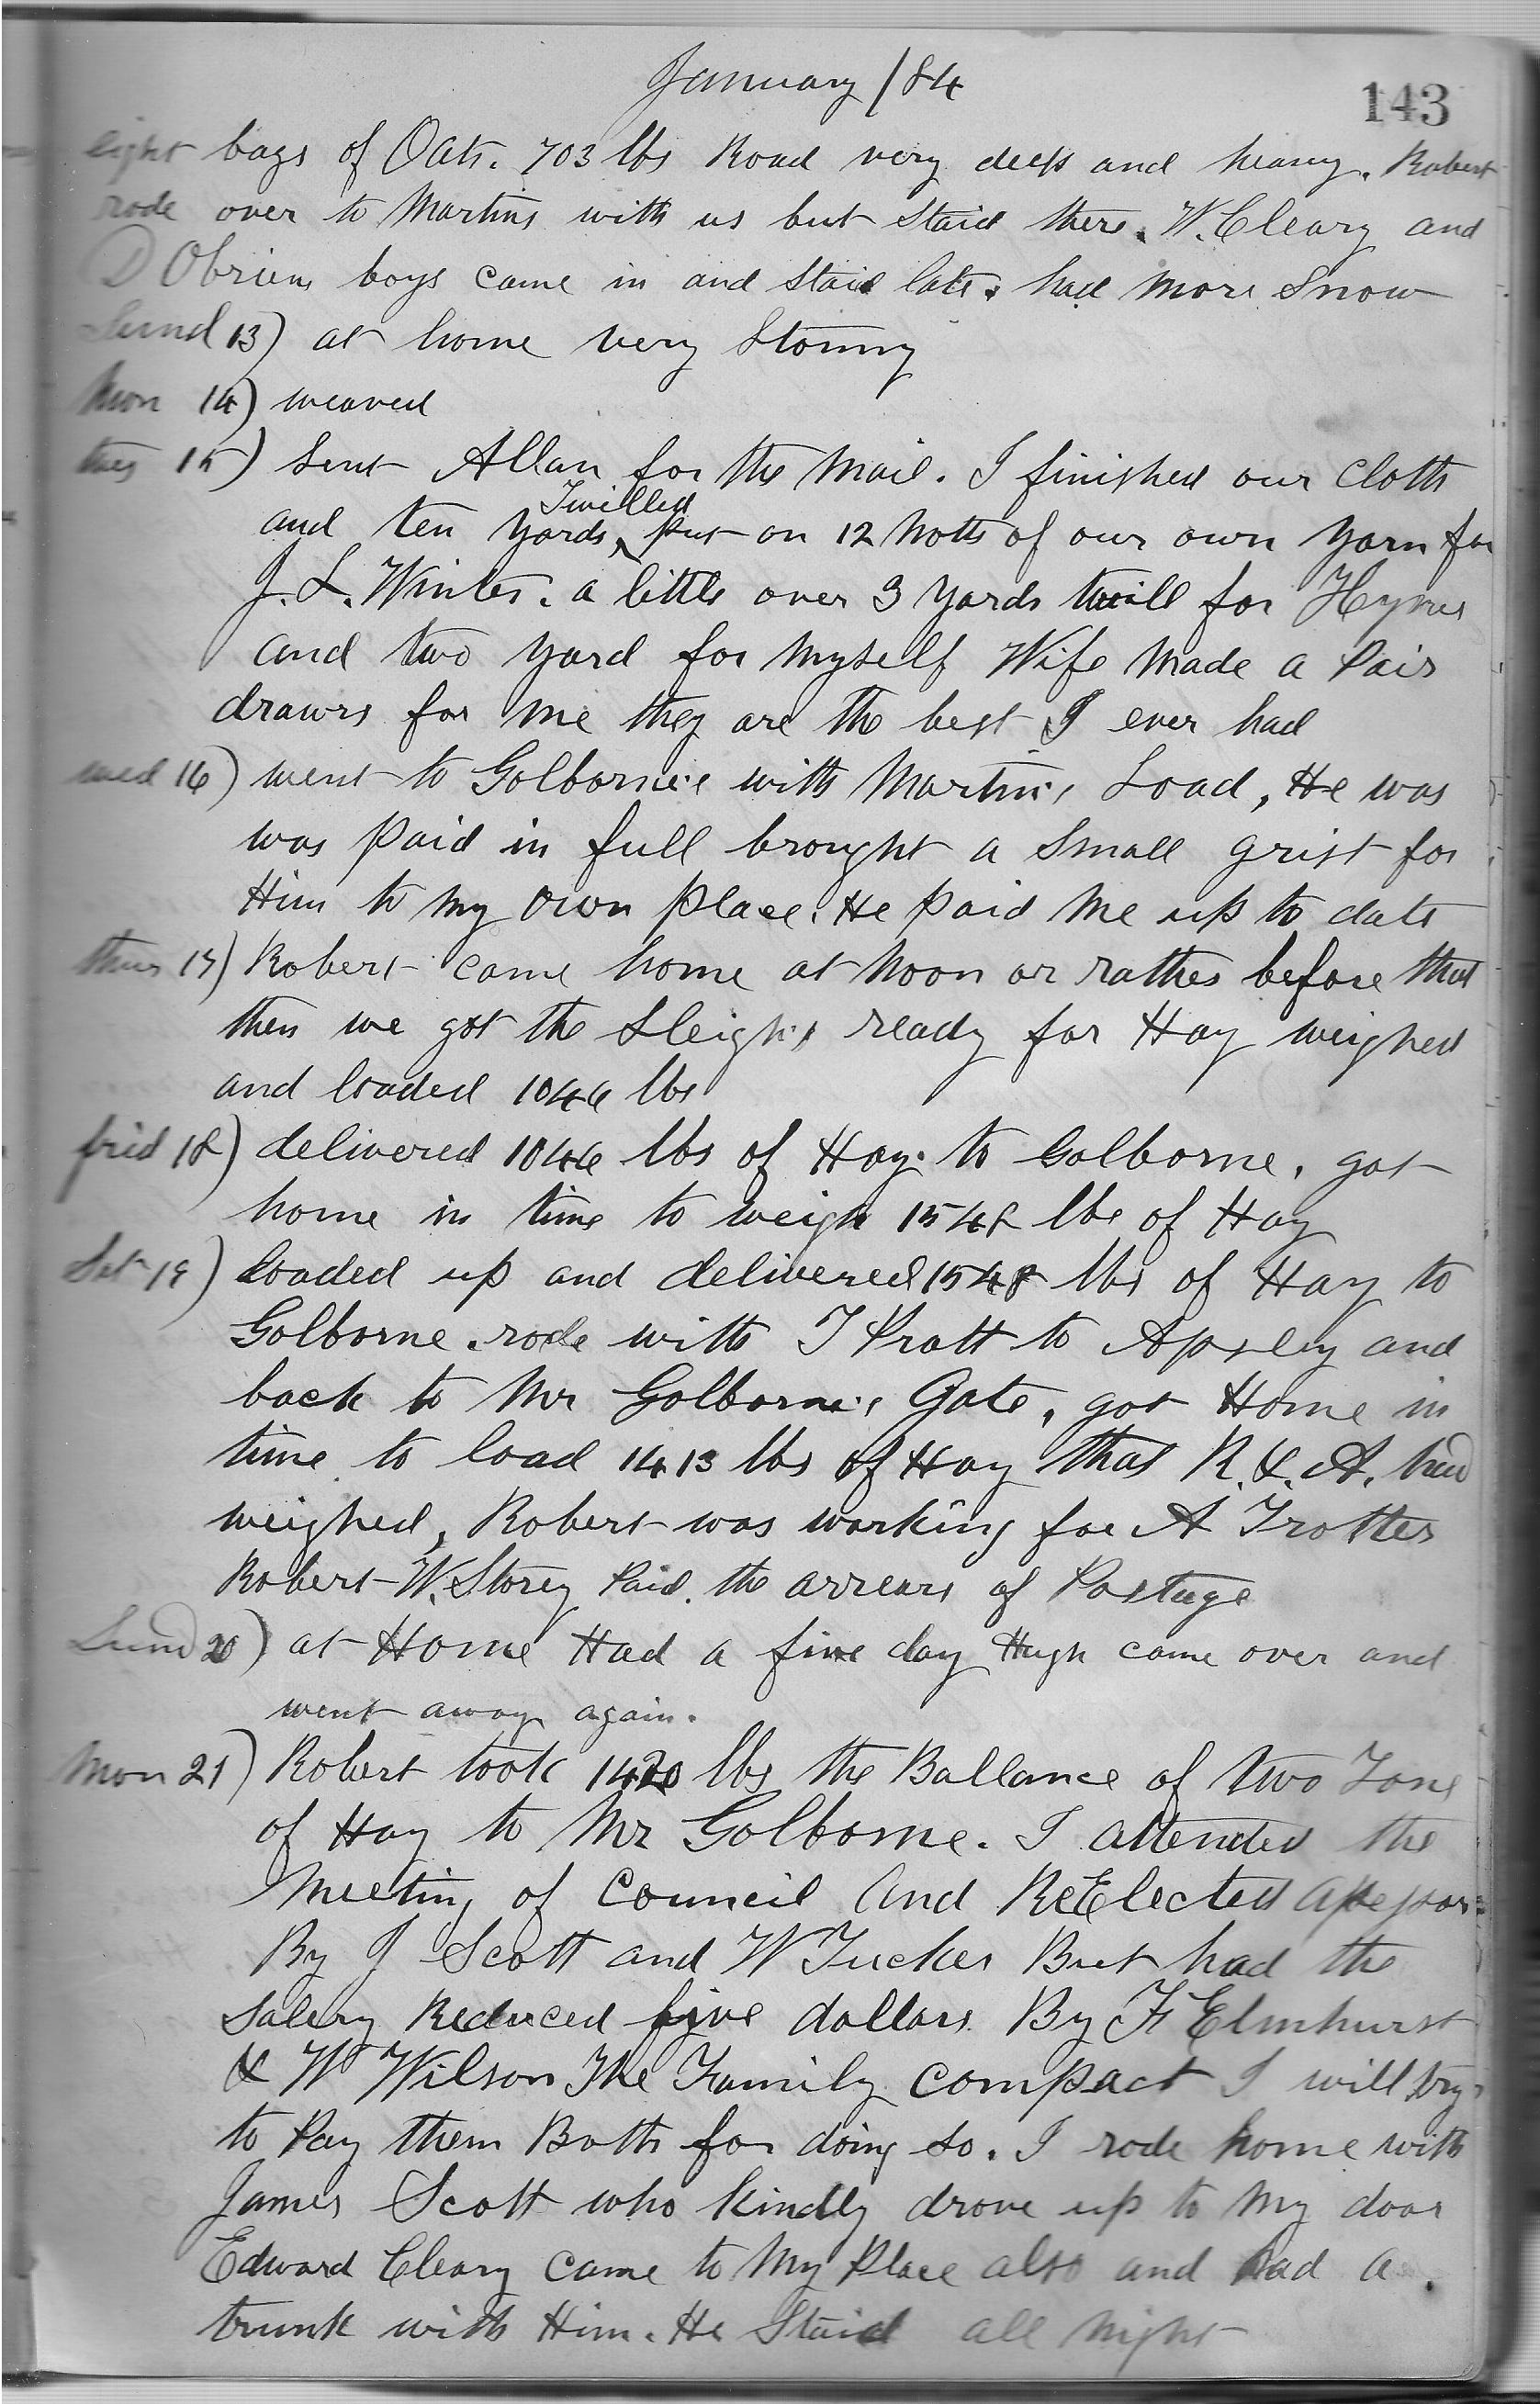 January /84
143
eight bags of Oats. 703 lbs Road very deep and heavy. Robert
rode over to Martins with us but Staid there. W. Cleary and
D Obriens boys came in and Staid late. had more Snow
Sund 13) at home very Stormy
Mon 14) weaved
tues 15) Sent Allan for the Mail. I finished our Cloth
Twilled
and ten Yards, put on 12 Notts of our own Yarn for
J. L. Winter. a little over 3 Yards twill for
and two Yard for Myself Wife Made a Pair
drawrs for me they are the best I ever had
wed 16) went to Golborne's with Martin's Load, He was
was Paid in full brought a Small grist for
Him to My Own place. He paid Me up to date
thurs 17) Robert came home at Noon or rather before that
then we got the Sleighs ready for Hay weighed
and loaded 1046 lbs
frid 18) delivered 1046 lbs of Hay to Golborne. got
home in time to weigh 1548 lbs of Hay
Sat 19) Loaded up and delivered 1548 lbs of Hay to
Golborne. rode with T Pratt to Apsley and
back to Mr Golborne's Gate, got Home in
time to load 1413 lbs of Hay that R. & A. had
weighed, Robert was working for A Trotter
Robert W. Storey Paid. the arrears of Postage
Sund 20) at Home Had a fine day Hugh came over and
went away again.
Mon 21) Robert took 1420 lbs the Ballance of two Tons
of Hay to Mr Golborne. I attended the
Meeting of Council And ReElected
By J Scott and W Tucker But had the
Salery Reduced five dollars By F Elmhurst
& W Wilson The Family Compact I will try
to Pay them Both for doing so. I rode home with
James Scott who kindly drove up to My door
Edward Cleary came to My Place also and had a
trunk with Him. He Staid all Night